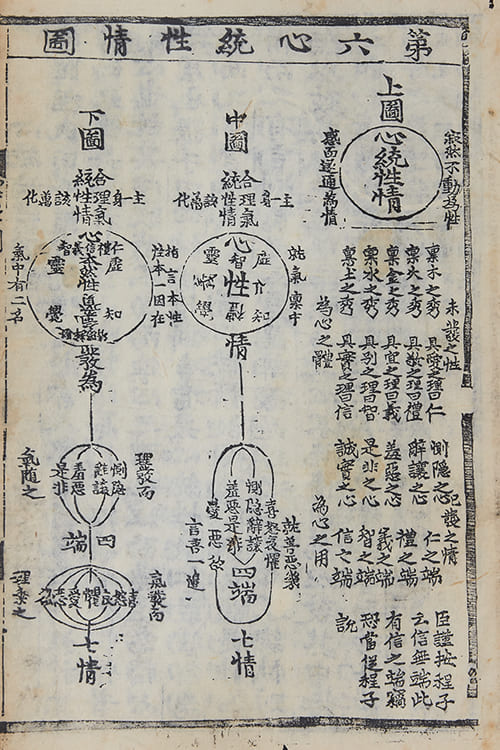 第六心統性情圖
上圖
寂然不動爲性
心統性情
感而遂通爲情
未發之性
稟木之秀 具愛之理曰仁
稟火之秀 具敬之理曰禮
稟金之秀 具宜之理曰義
稟水之秀 具別之理曰智
稟土之秀 具實之理曰信
爲心之體
已發之情
惻隱之心 仁之端
辭讓之心 禮之端
羞惡之心 義之端
是非之心 智之端
誠實之心 信之端
爲心之用
臣謹按程子
云信無端此
有信之端竊
恐當從程子
說
中圖
合理氣
統性情
主一身
該萬化
心
虛
知
靈
覺
仁
義
禮
智
性
就氣稟中
指言本性
情
就善惡幾
言善一邊
惻隱辭讓
羞惡是非
四端
喜怒哀懼
愛惡欲
七情
下圖
合理氣
統性情
主一身
該萬化
心
虛
知
靈
覺
仁禮信義智
本然性
氣質性
性本一因在
氣中有二名
發爲
理發而
氣隨之
惻隱
辭讓
羞惡
是非
四端
氣發而
理乘之
喜怒哀懼愛惡欲
七情